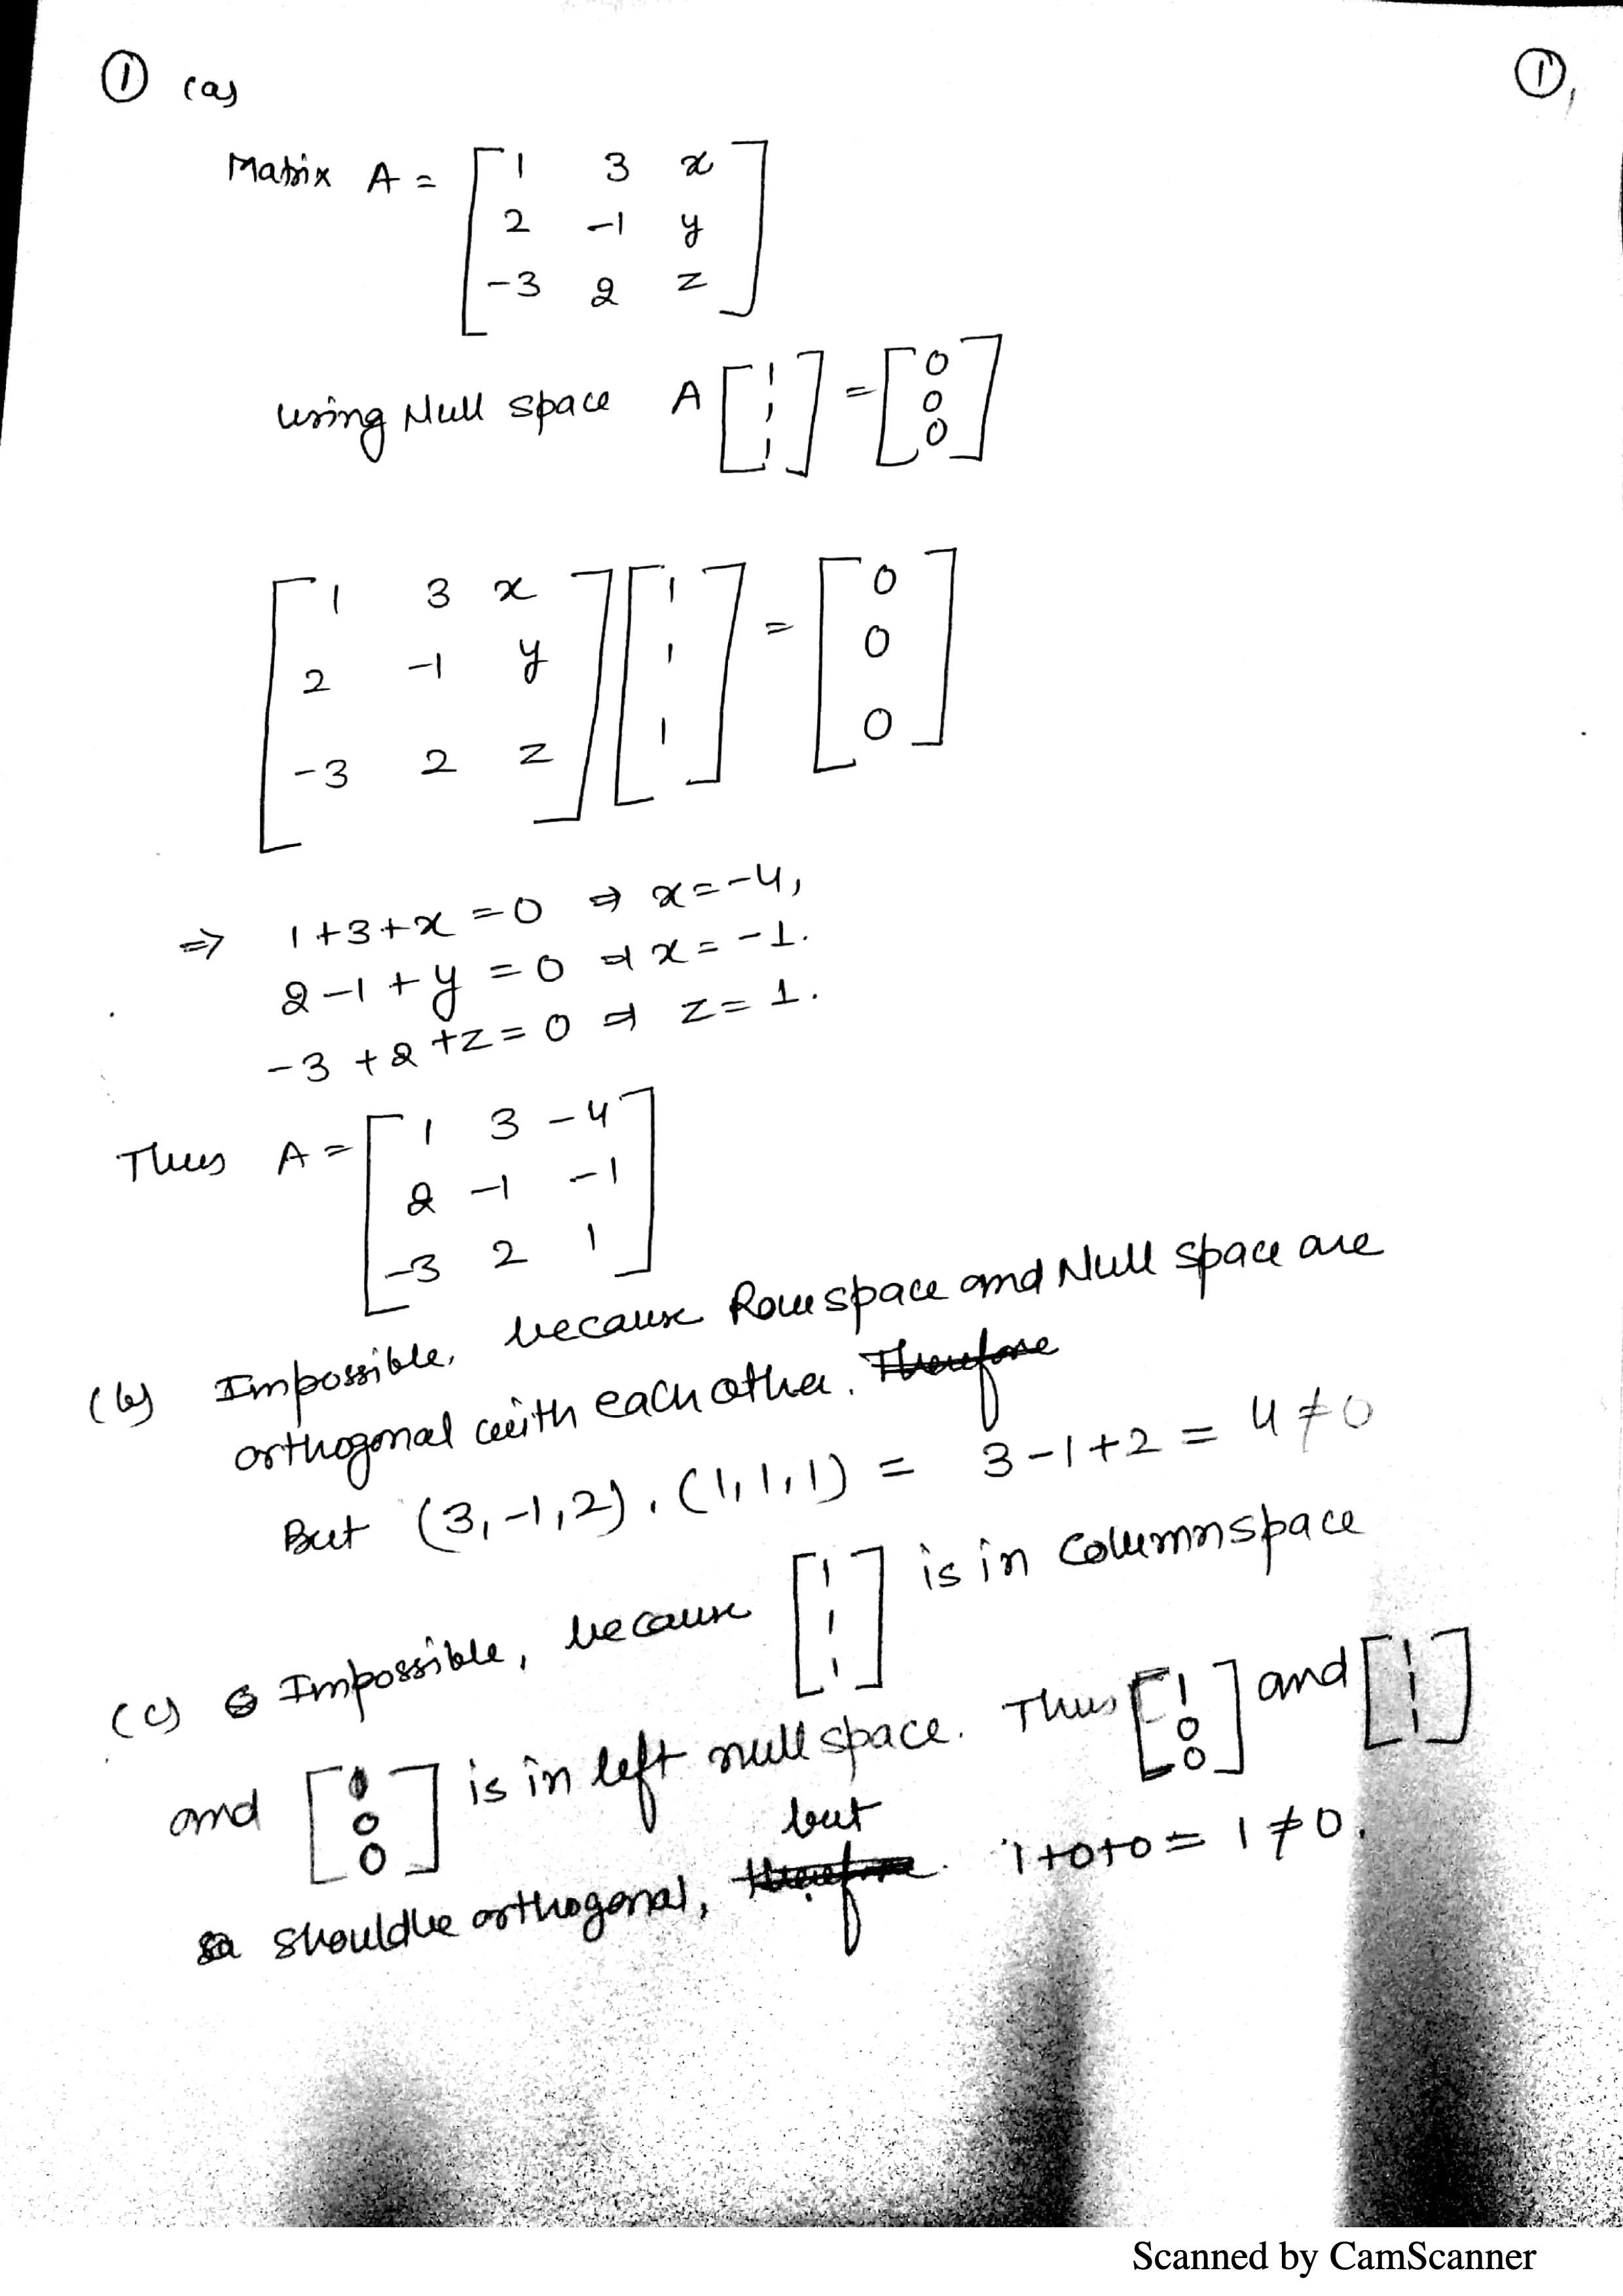 ① (a) ①,
Matrix A = [1 3 x
2 -1 y
-3 2 z]
using Null space A [1 1 1] = [0 0 0]
[1 3 x] [1] = [0]
[2 -1 y] [1] [0]
[-3 2 z] [1] [0]
⇒ 1+3+x = 0 ⇒ x = -4,
2-1+y = 0 ⇒ x = -1.
-3+2+z = 0 ⇒ z = 1.
Thus A = [1 3 -4
2 -1 -1
-3 2 1]
(b) Impossible, because Row space and Null space are
orthogonal with each other. Therefore
But (3,-1,2).(1,1,1) = 3-1+2 = 4 ≠ 0
(c) Impossible, because [1 1 1] is in Columnspace
and [1 0 0] is in left nullspace. Thus [1 0 0] and [1 1 1]
should be orthogonal, therefore but 1+0+0 = 1 ≠ 0.
Scanned by CamScanner